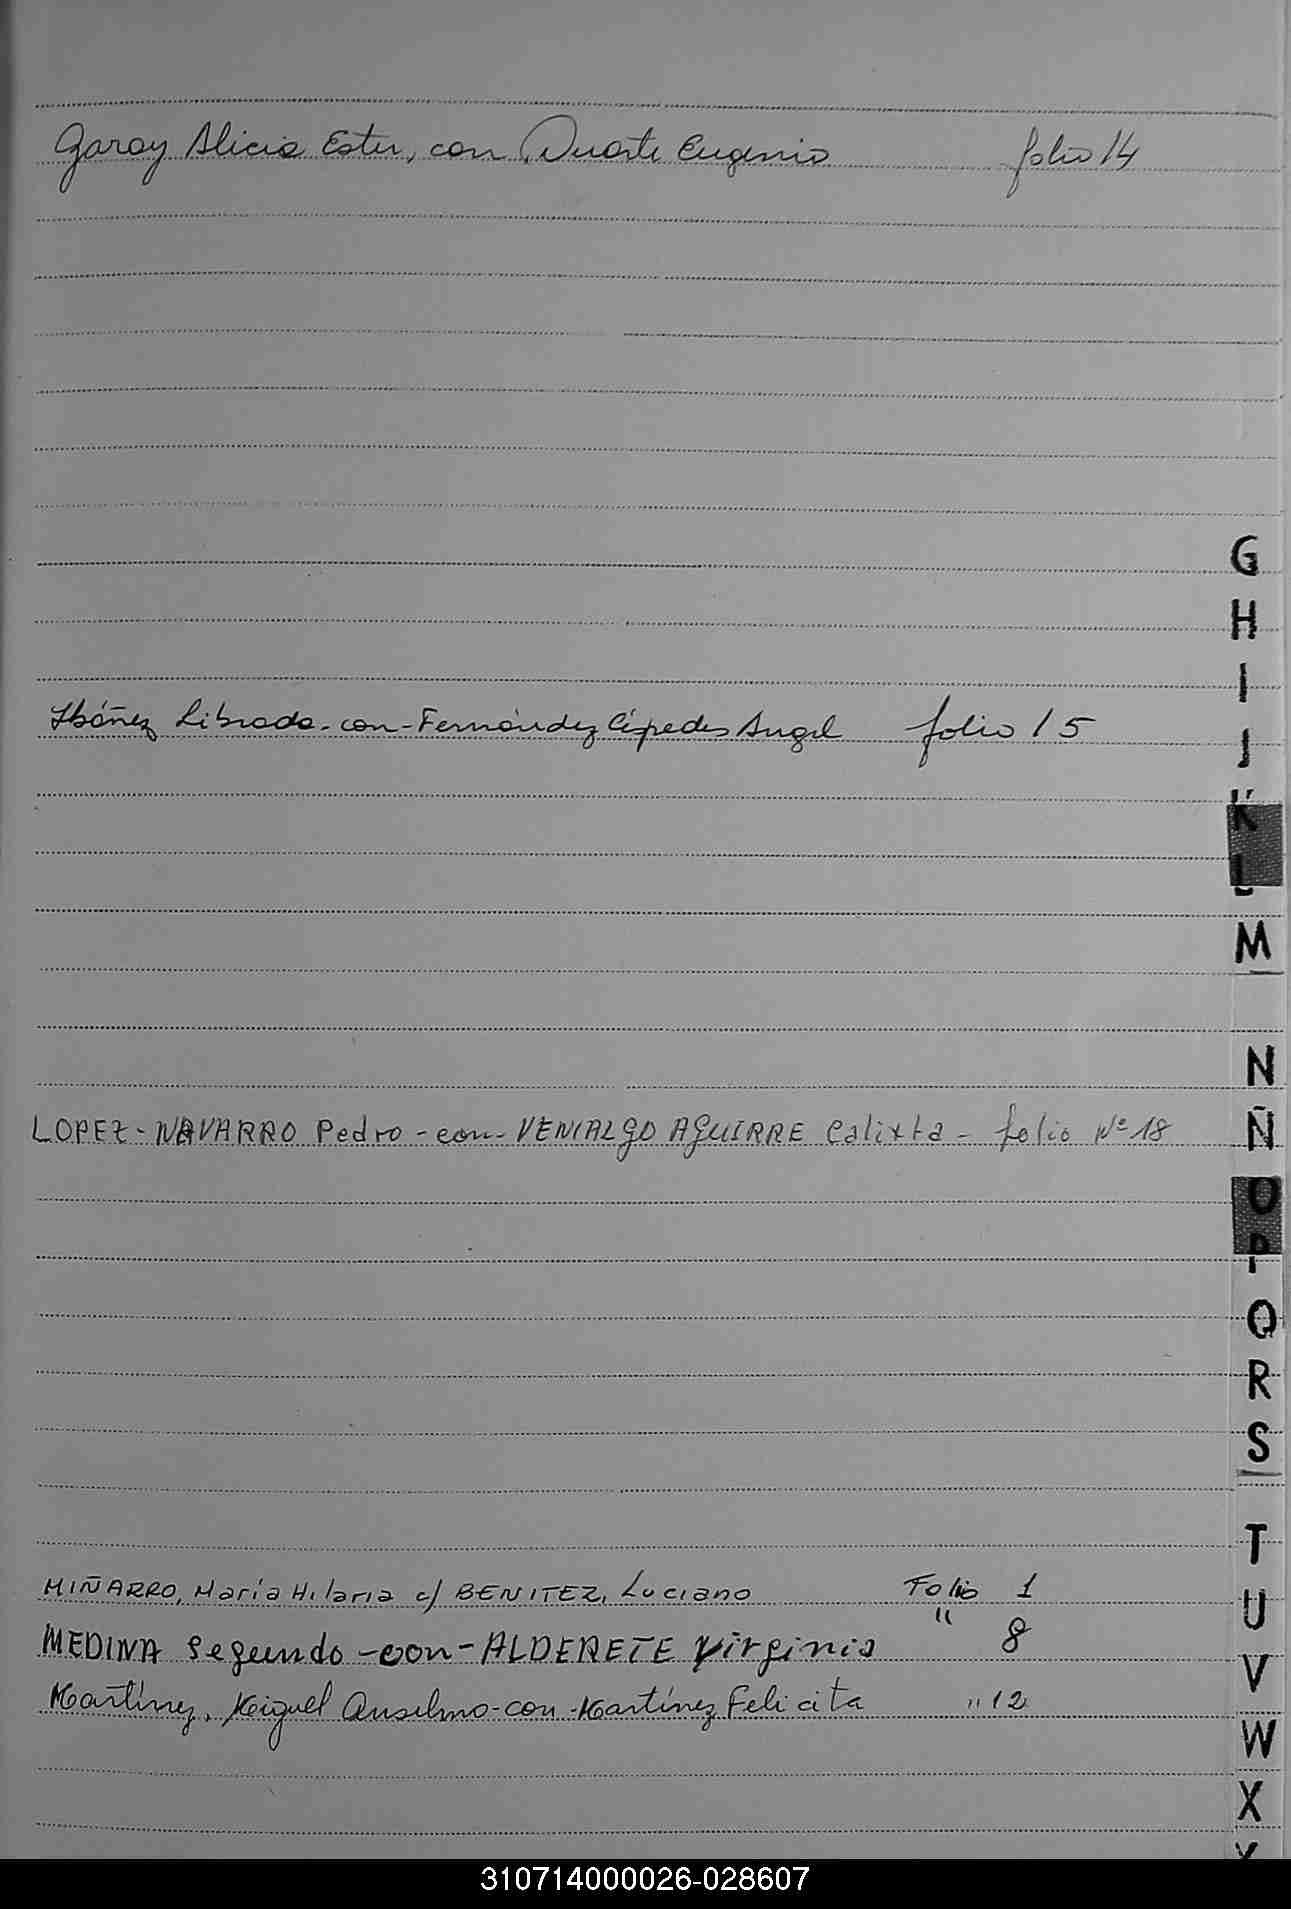 Garay Alicia Ester, con Duarte Eugenio folio 14
G
H
I
Ibáñez Librada - con - Fernández Céspedes Angel folio 15
J
K
L
M
N
LOPEZ - NAVARRO Pedro - con - VENIALGO AGUIRRE Calixta - folio Nº 18
Ñ
O
P
Q
R
S
T
MIÑARRO, María Hilaria c/ BENITEZ, Luciano Folio 1
U
MEDINA Segundo - con - ALDERETE Virginia " 8
V
Martínez, Miguel Anselmo - con - Martínez Felicita " 12
W
X
Y
310714000026-028607